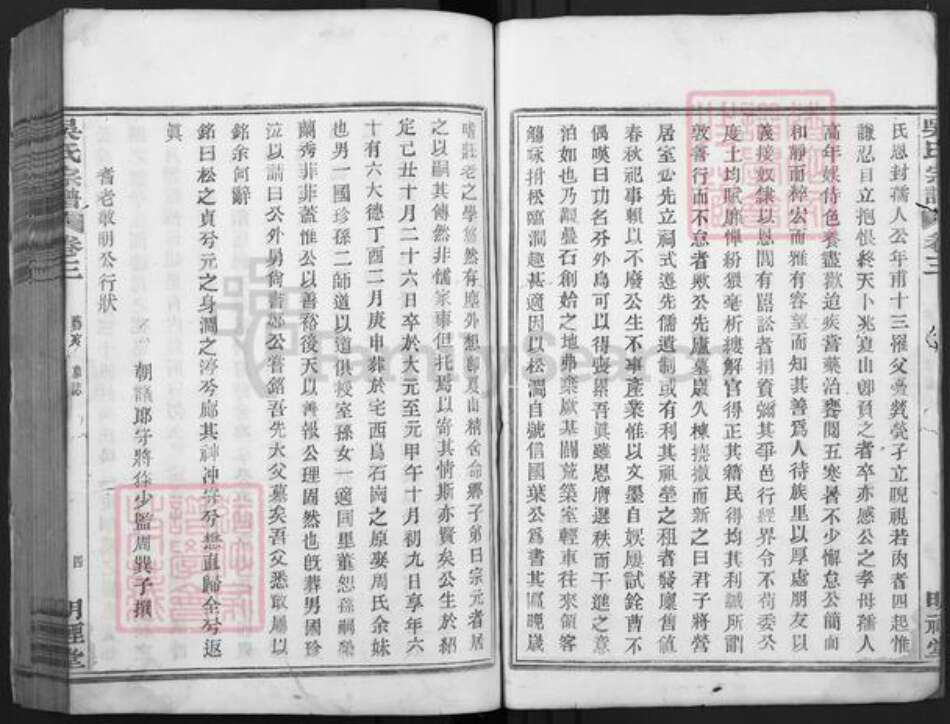 氏恩封孺人公年甫十三罹父憂煢煢孑立睨視若肉者四起惟
謙忍目立抱恨終天卜兆夏山卽負之者卒亦感公之孝母孺人
高年娛侍色養盡歡迨疾嘗藥治饔閱五寒暑不少懈怠公簡而
和靜而粹宏而雅有容望而知其善爲人待族里以厚處朋友以
義接奴隸以恩間有嚚訟者捐資彌其爭邑行經界令不苟委公
度土均賦靡憚紛猥毫析縷解官得正其籍民得均其利鍼所謂
敦善行而不怠者歟公先廬墓歲久棟撓撤而新之曰君子將營
居室必先立祠式遵先儒遺制或有利其祖塋之租者發廩售値
春秋祀事賴以不廢公生不事產業惟以文墨自娛屢試銓曹不
偶嘆曰功名外鳥可以得喪累吾眞雖恩膺選秩而干進之意
泊如也乃疊石創始之地弗棄厥基闢荒築室輕車往來領客
觴咏揖松臨澗趣甚適因以松澗自號信國葉公爲書其匾晚歲
嗜莊老之學悠然有塵外想卽夏山精舍命鄉子弟曰宗元者居
之以嗣其傳然非儒家事但托焉以寄其情斯亦賢矣公生於紹
定己丑十月二十六日卒於大元至元甲午十月初九日享年六
十有六大德丁酉二月庚申葬於宅西烏石崗之原娶周氏余妹
也男一國珍孫二師道以道俱授室孫女一適同里董恕孫嗣榮
蘭秀非非蓋惟公以善裕後天以善報公理固然也旣葬男國珍
泣以請曰公外男侚書郎公嘗銘吾先大父墓矣吾父悉敢屬以
銘余何辭
銘曰松之貞兮元之身澗之渟兮廊其神冲兮兮懋直歸全兮返
眞
耆老敢明公行狀
朝請郎守將作少監周巽子撰
吳氏宗譜
卷三
墓誌
四
明經堂
吳氏宗譜
卷三